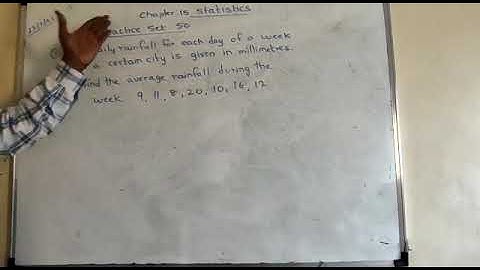 Chapter 15 Statistics
Practice Set 50
aily rainfall for each day of a week
a certain city is given in millimetres.
ind the average rainfall during the
week 9, 11, 8, 20, 10, 16, 12